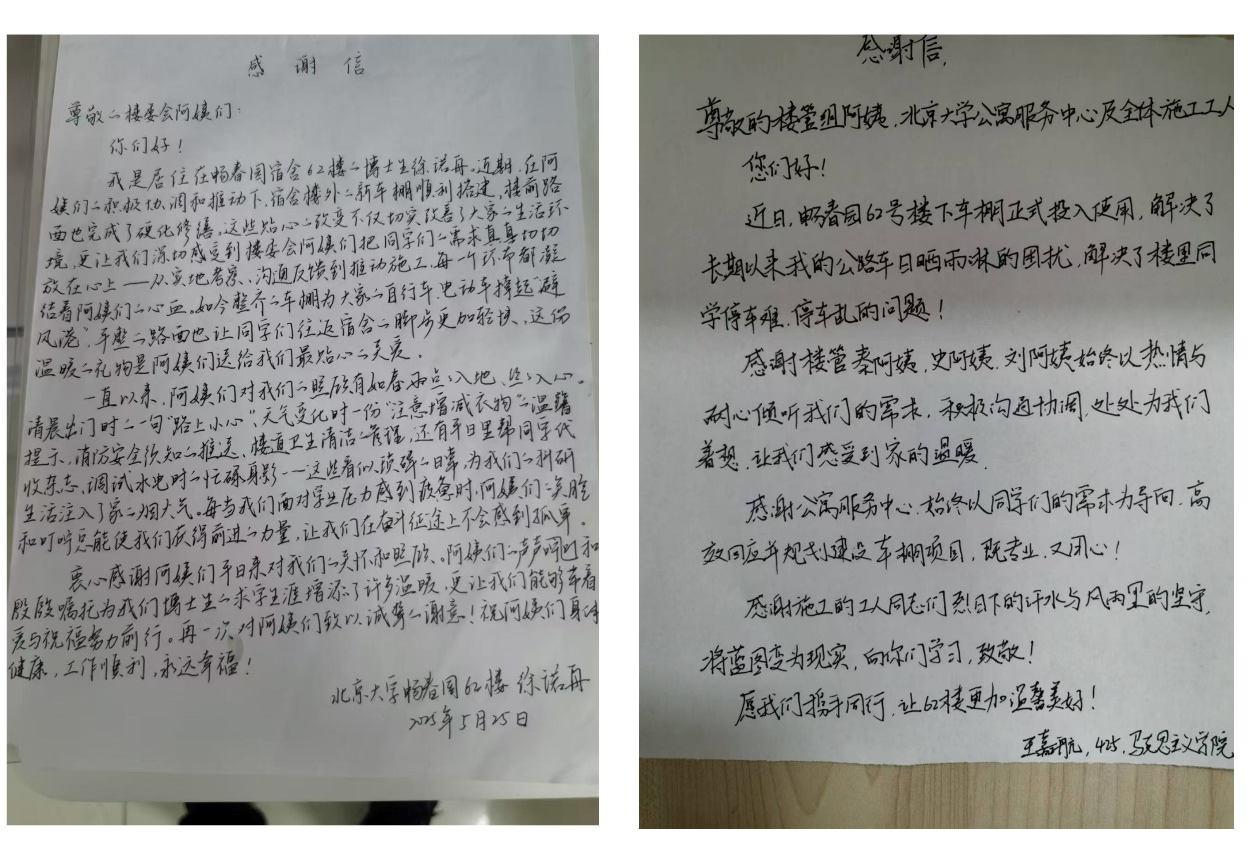 感谢信
尊敬的楼委会阿姨们：
你们好！
我是居住在畅春园宿舍62楼的博士生徐诺舟。近期，在阿
姨们的积极协调和推动下，宿舍楼外的新车棚顺利搭建，楼前路
面也完成了硬化修缮。这些贴心的改变不仅切实改善了大家的生活环
境，更让我们深切感受到楼委会阿姨们把同学们的需求真真切切
放在心上——从实地考察、沟通反馈到推动施工，每一个环节都凝
结着阿姨们的心血。如今整齐的车棚为大家的自行车、电动车撑起“避
风港”，平整的路面也让同学们往返宿舍的脚步更加轻快，这份
温暖的礼物是阿姨们送给我们最贴心的关爱。
一直以来，阿姨们对我们的照顾有如春雨点点入地，丝丝入心。
清晨出门时的一句“路上小心”、天气变化时一份“注意增减衣物”的温馨
提示，消防安全须知的推送、楼道卫生清洁的管理，还有平日里帮同学代
收杂志，调试水电时的忙碌身影——这些看似琐碎的日常，为我们的科研
生活注入了家的烟火气。每当我们面对学业压力感到疲惫时，阿姨们的笑脸
和叮咛总能使我们获得前进的力量，让我们在奋斗征途上不会感到孤单。
衷心感谢阿姨们平日来对我们的关怀和照顾。阿姨们的声声问候和
殷殷嘱托为我们博士生的求学生涯增添了许多温暖，更让我们能够带着
爱与祝福努力前行。再一次对阿姨们致以诚挚的谢意！祝阿姨们身体
健康，工作顺利，永远幸福！
北京大学畅春园62楼 徐诺舟
2025年5月25日
感谢信
尊敬的楼管组阿姨、北京大学公寓服务中心及全体施工工人
您们好！
近日，畅春园62号楼下车棚正式投入使用，解决了
长期以来我的公路车日晒雨淋的困扰，解决了楼里同
学停车难、停车乱的问题！
感谢楼管秦阿姨、史阿姨、刘阿姨始终以热情与
耐心倾听我们的需求，积极沟通协调，处处为我们
着想，让我们感受到家的温暖。
感谢公寓服务中心，始终以同学们的需求为导向，高
效回应并规划建设车棚项目，既专业，又用心！
感谢施工的工人同志们烈日下的汗水与风雨里的坚守，
将蓝图变为现实，向你们学习，致敬！
愿我们携手同行，让62楼更加温馨美好！
王嘉航，425，马克思主义学院